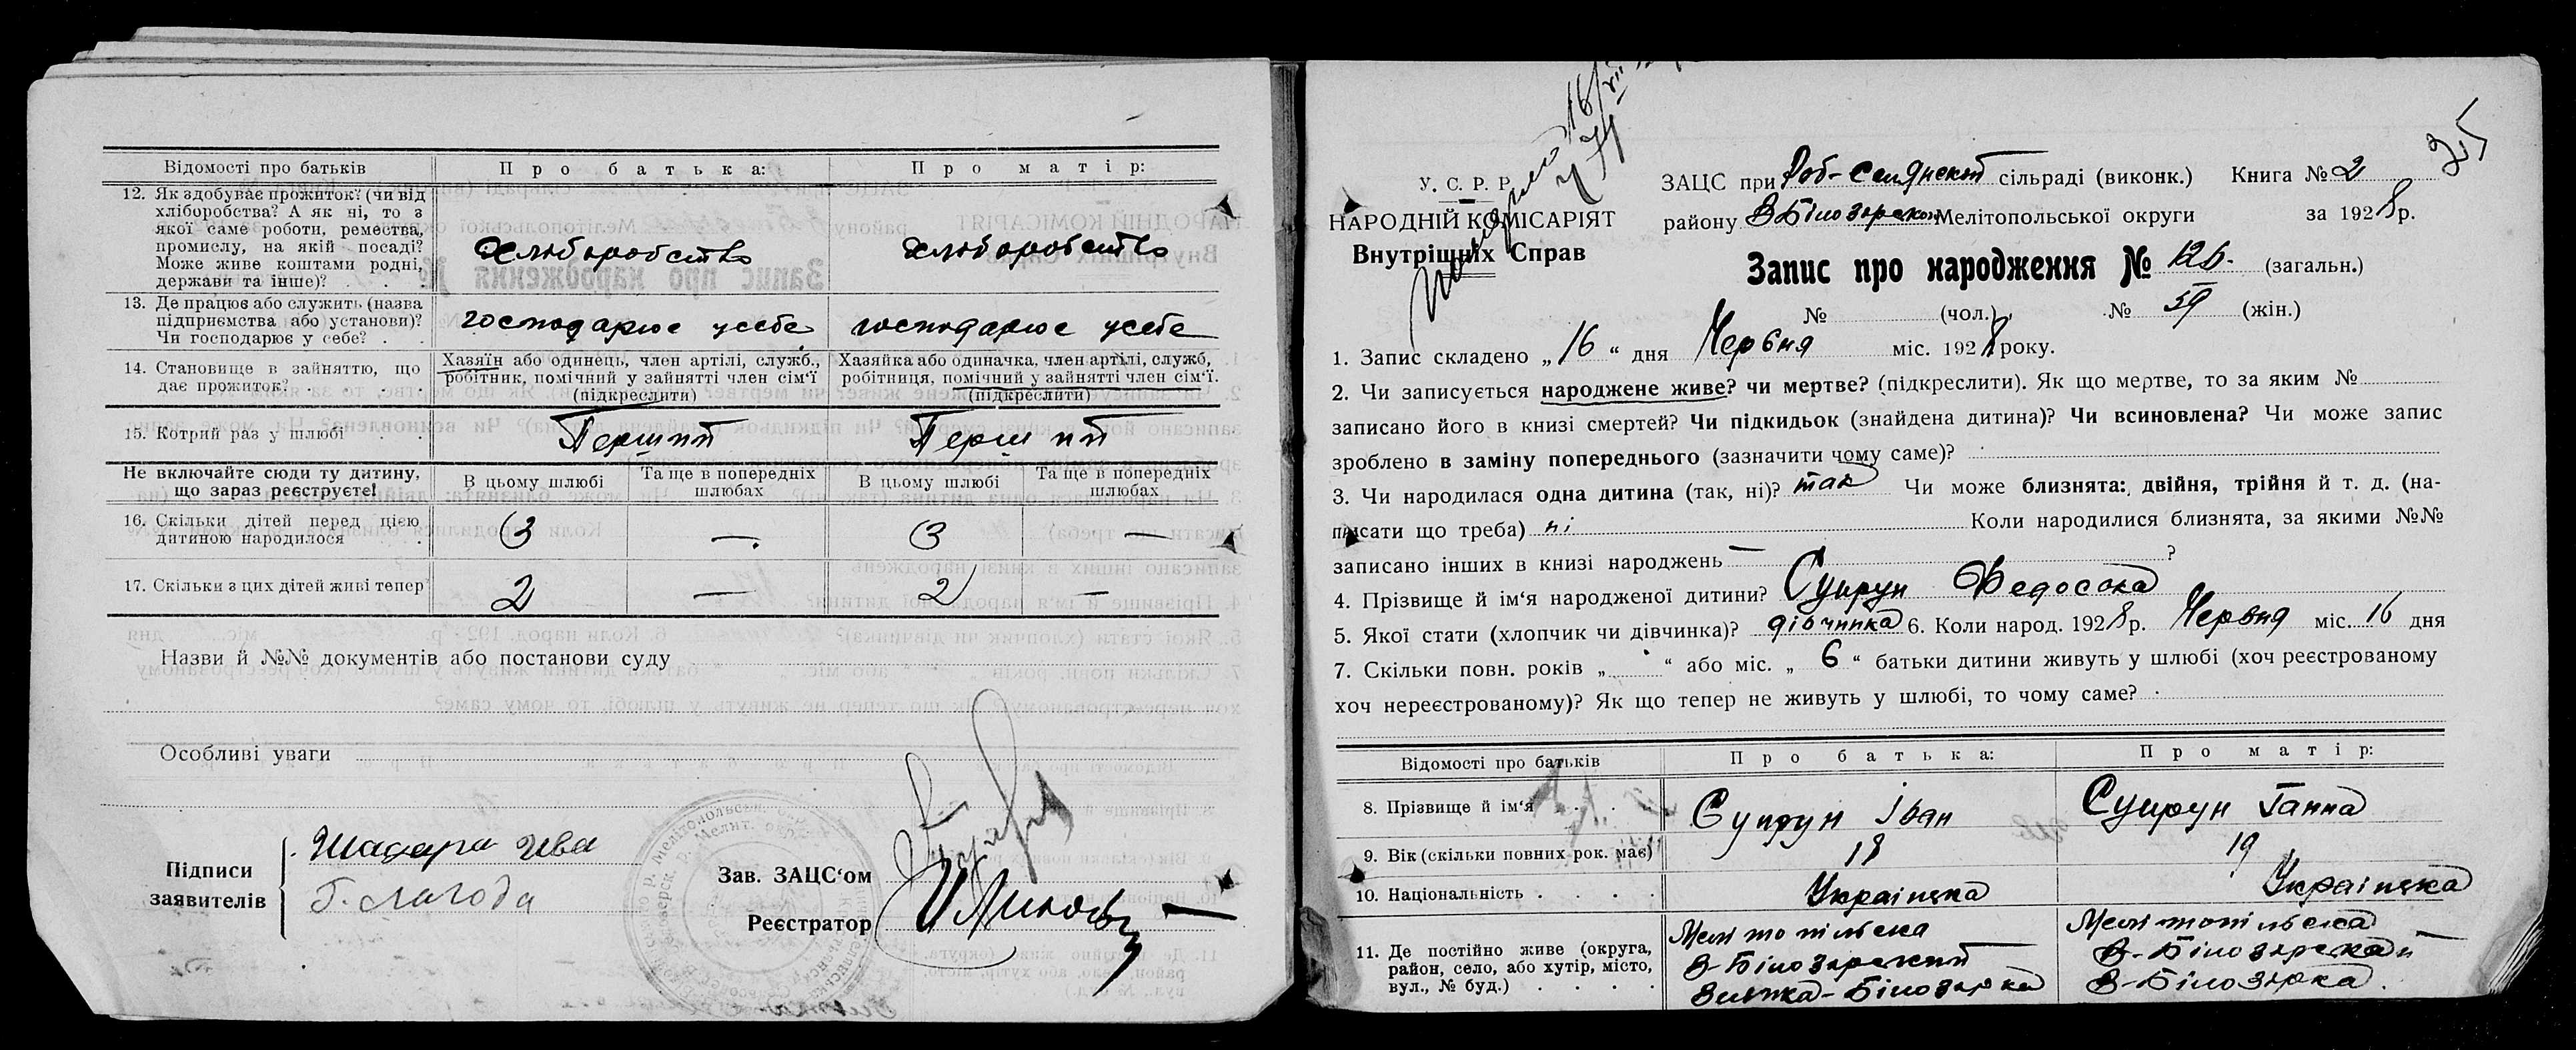 Відомості про батьків Про батька: Про матір:
12. Як здобуває прожиток? (чи від
хліборобства? А як ні, то з
якої саме роботи, ремества,
промислу, на якій посаді?
Може живе коштами родні,
держави та інше)? . . .
хліборобство хліборобство
13. Де працює або служить (назва
підприємства або установи)?
Чи господарює у себе? . .
господарює усебе господарює усебе
14. Становище в зайняттю, що
дає прожиток? . . . .
Хазяїн або одинець, член артілі, служб.,
робітник, помічний у зайнятті член сім'ї
(підкреслити)
Хазяйка або одиначка, член артілі, служб,
робітниця, помічний у зайнятті член сім'ї.
(підкреслити)
15. Котрий раз у шлюбі . . Перший Перший
Не включайте сюди ту дитину,
що зараз реєструєте!
В цьому шлюбі Та ще в попередніх шлюбах В цьому шлюбі Та ще в попередніх шлюбах
16. Скільки дітей перед цією
дитиною народилося . .
3 — 3 —
17. Скільки з цих дітей живі тепер 2 — 2 —
Назви й №№ документів або постанови суду
Особливі уваги
Підписи
заявителів
Г. Лагода
Зав. ЗАЦС'ом
Реєстратор
25
У. С. Р. Р.
НАРОДНІЙ КОМІСАРІЯТ
Внутрішніх Справ
ЗАЦС при Роб-Селянскій сільраді (виконк.) Книга № 2
району В Білозорском Мелітопольської округи за 1928 р.
Запис про народження № 126. (загальн.)
№ (чол.), № 59 (жін.)
1. Запис складено „16" дня Червня міс. 1928 року.
2. Чи записується народжене живе? чи мертве? (підкреслити). Як що мертве, то за яким №
записано його в книзі смертей? Чи підкидьок (знайдена дитина)? Чи всиновлена? Чи може запис
зроблено в заміну попереднього (зазначити чому саме)?
3. Чи народилася одна дитина (так, ні)? так Чи може близнята: двійня, трійня й т. д. (на-
писати що треба) ні Коли народилися близнята, за якими №№
записано інших в книзі народжень — ?
4. Прізвище й ім'я народженої дитини? Супрун Федосока
5. Якої стати (хлопчик чи дівчинка)? дівчинка 6. Коли народ. 1928 р. Червня міс. 16 дня
7. Скільки повн. років „ " або міс. „ 6 " батьки дитини живуть у шлюбі (хоч реєстрованому
хоч нереєстрованому)? Як що тепер не живуть у шлюбі, то чому саме?
Відомості про батьків Про батька: Про матір:
8. Прізвище й ім'я . . . . Супрун Іван Супрун Ганна
9. Вік (скільки повних рок. має) 18 19
10. Національність . . . . Украінска Украінска
11. Де постійно живе (округа,
район, село, або хутір, місто,
вул., № буд.) . . . .
Мелітопільска
В-Білозорский
Велика-Білозорка
Мелітопільска
В-Білозорскай
В-Білозорка.